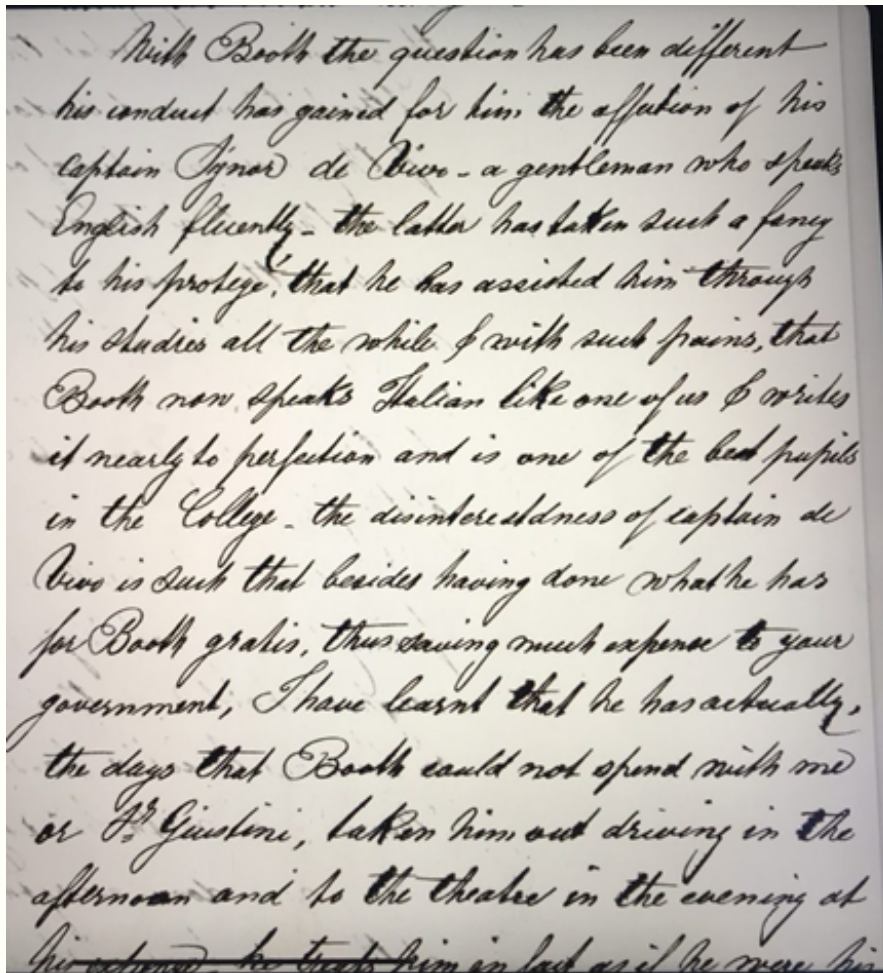 With Booth the question has been different
his conduct has gained for him the affection of his
captain Signor de Vivo - a gentleman who speaks
English fluently - the latter has taken such a fancy
to his protegé, that he has assisted him through
his studies all the while & with such pains, that
Booth now speaks Italian like one of us & writes
it nearly to perfection and is one of the best pupils
in the College - the disinterestdness of captain de
Vivo is such that besides having done what he has
for Booth gratis, thus saving much expense to your
government, I have learnt that he has actually,
the days that Booth could not spend with me
or Sr Giustini, taken him out driving in the
afternoon and to the theatre in the evening at
his expense - he treats him in fact as if he were his